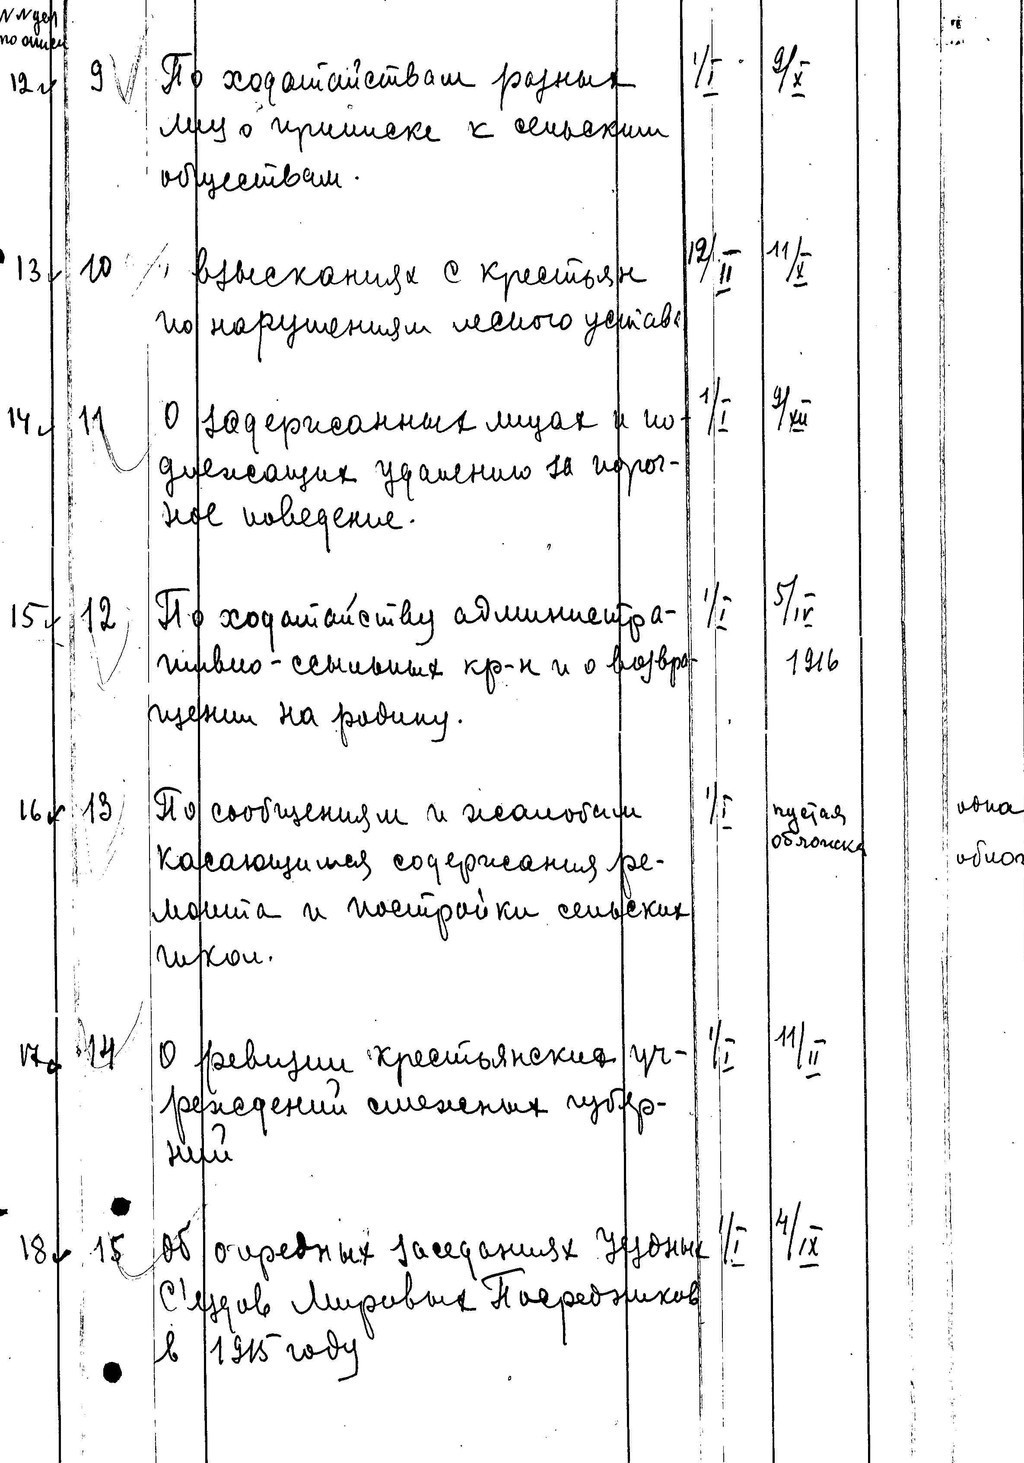 NN дел
по описи
12 9 По ходатайствам разных 1/I 9/X
лиц о приписке к сельским
обществам.
13 10 " взысканиях с крестьян 12/II 11/X
по нарушениям лесного устава
14 11 О задержанных лицах и по- 1/I 9/XII
длежащих удалению за пороч-
ное поведение.
15 12 По ходатайству администра- 1/I 5/IV
тивно-ссыльных кр-н и о возвра- 1916
щении на родину.
16 13 По сообщениям и жалобам 1/I пустая одна
касающимся содержания ре- обложка облож
монта и постройки сельских
школ.
17 14 О ревизии крестьянских уч- 1/I 11/II
реждений смежных губер-
ний
18 15 Об очредных заседаниях уездных 1/I 4/IX
С'ездов Мировых Посредников
в 1915 году